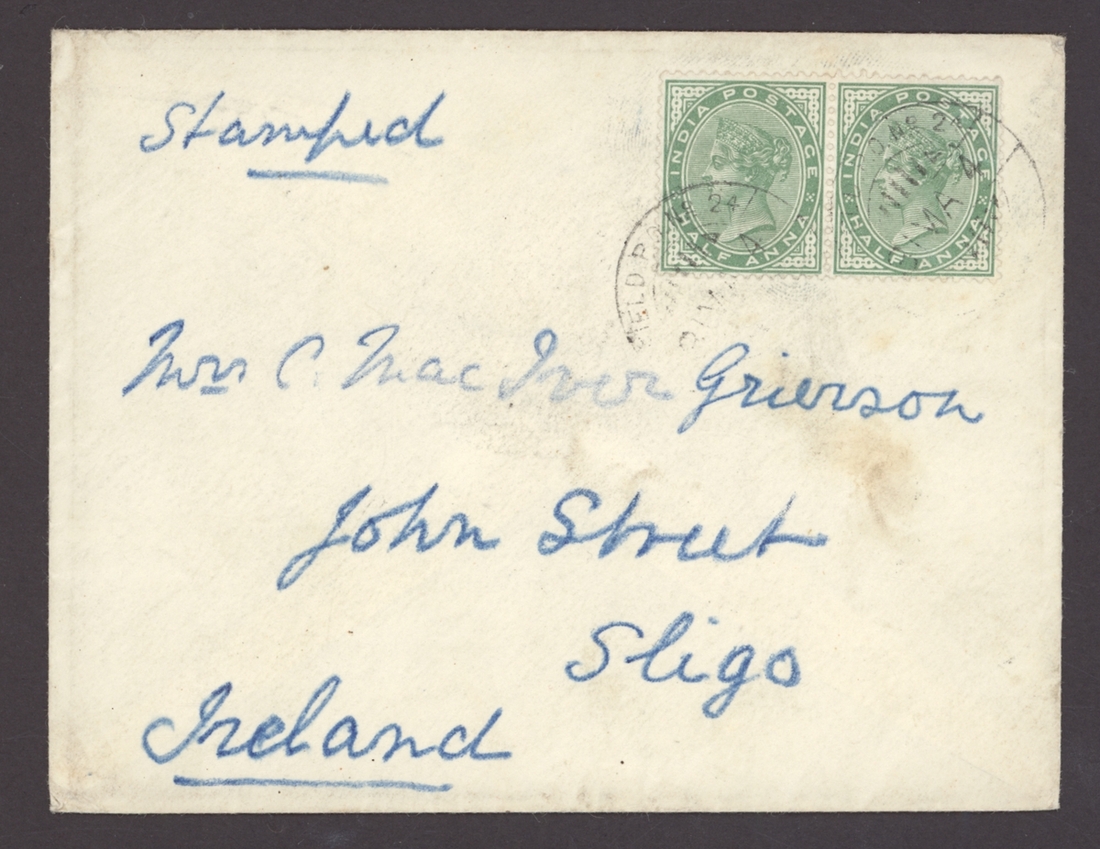 Stamped
INDIA POSTAGE
HALF ANNA
INDIA POSTAGE
HALF ANNA
24
Mrs C. MacIver Grierson
John Street
Sligo
Ireland